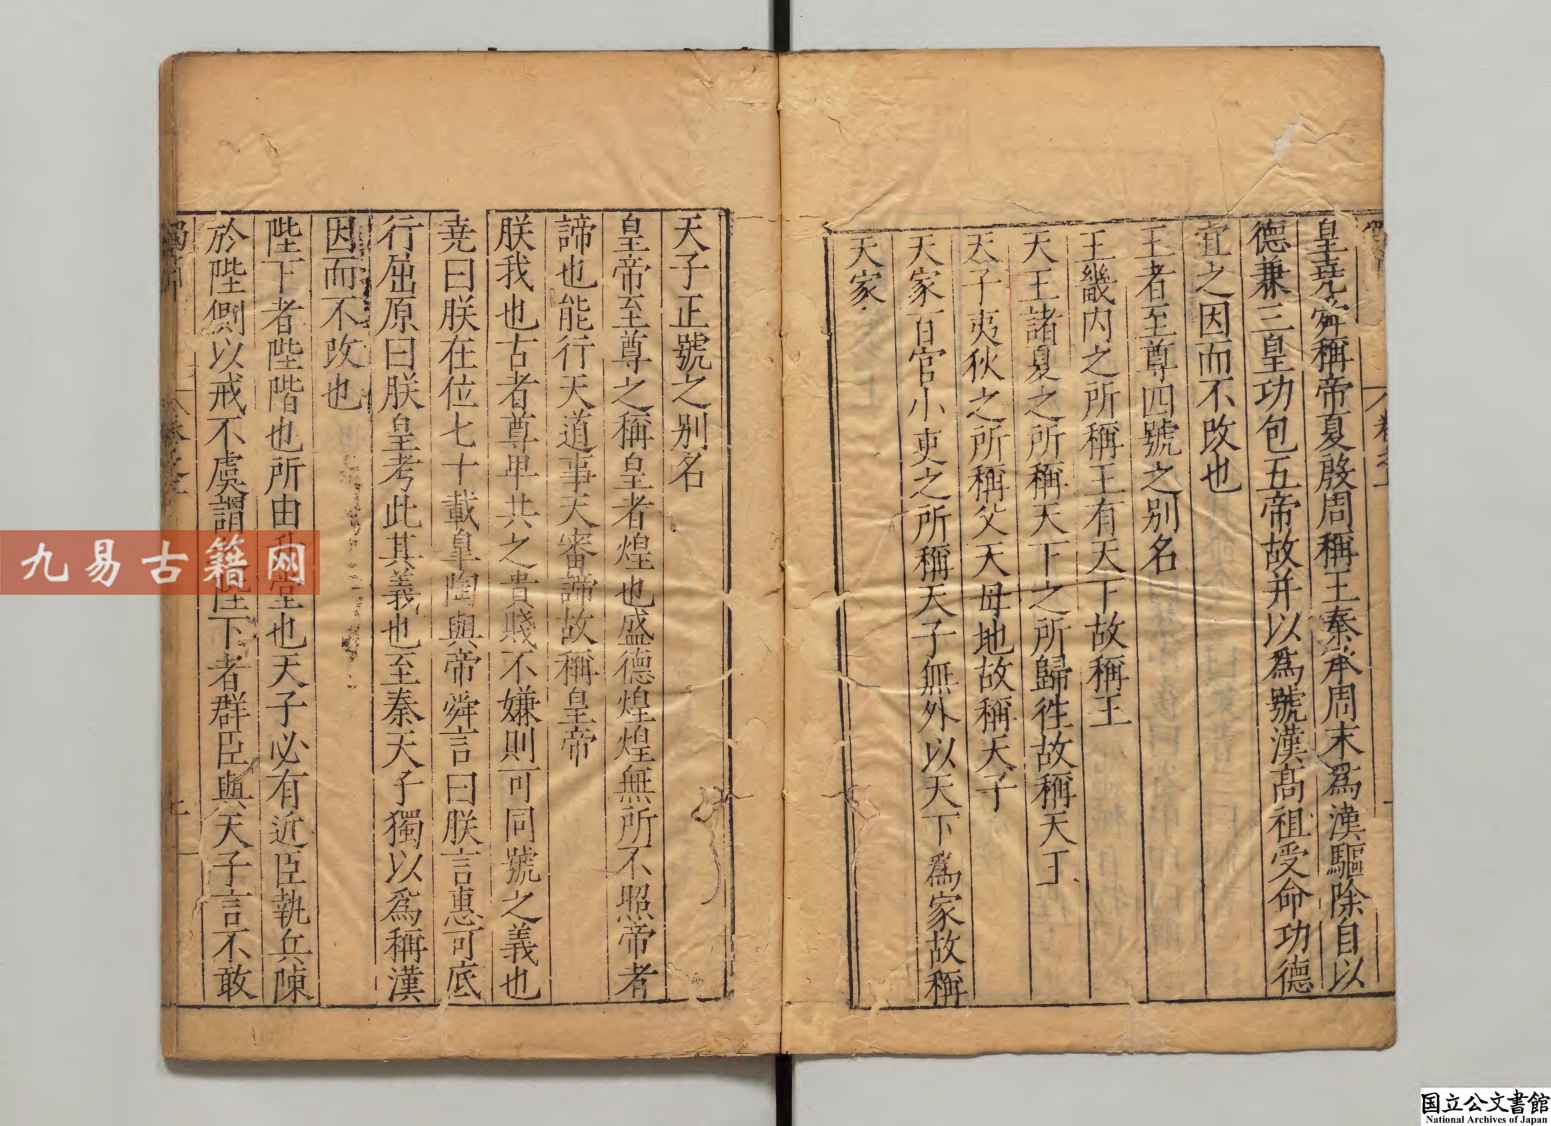 皇堯舜稱帝夏殷周稱王秦承周末爲漢驅除自以
德兼三皇功包五帝故并以爲號漢髙祖受命功德
宜之因而不改也
王者至尊四號之别名
王畿内之所稱王有天下故稱王
天王諸夏之所稱天下之所歸徃故稱天王
天子夷狄之所稱父天母地故稱天子
天家百官小吏之所稱天子無外以天下爲家故稱
天家
天子正號之别名
皇帝至尊之稱皇者煌也盛德煌煌無所不照帝者
諦也能行天道事天審諦故稱皇帝
朕我也古者尊卑共之貴賤不嫌則可同號之義也
堯曰朕在位七十載皐陶與帝舜言曰朕言惠可底
行屈原曰朕皇考此其義也至秦天子獨以爲稱漢
因而不改也
陛下者陛階也所由堂也天子必有近臣執兵陳
於陛側以戒不虞謂陛下者群臣與天子言不敢
九易古籍网
国立公文書館
National Archives of Japan